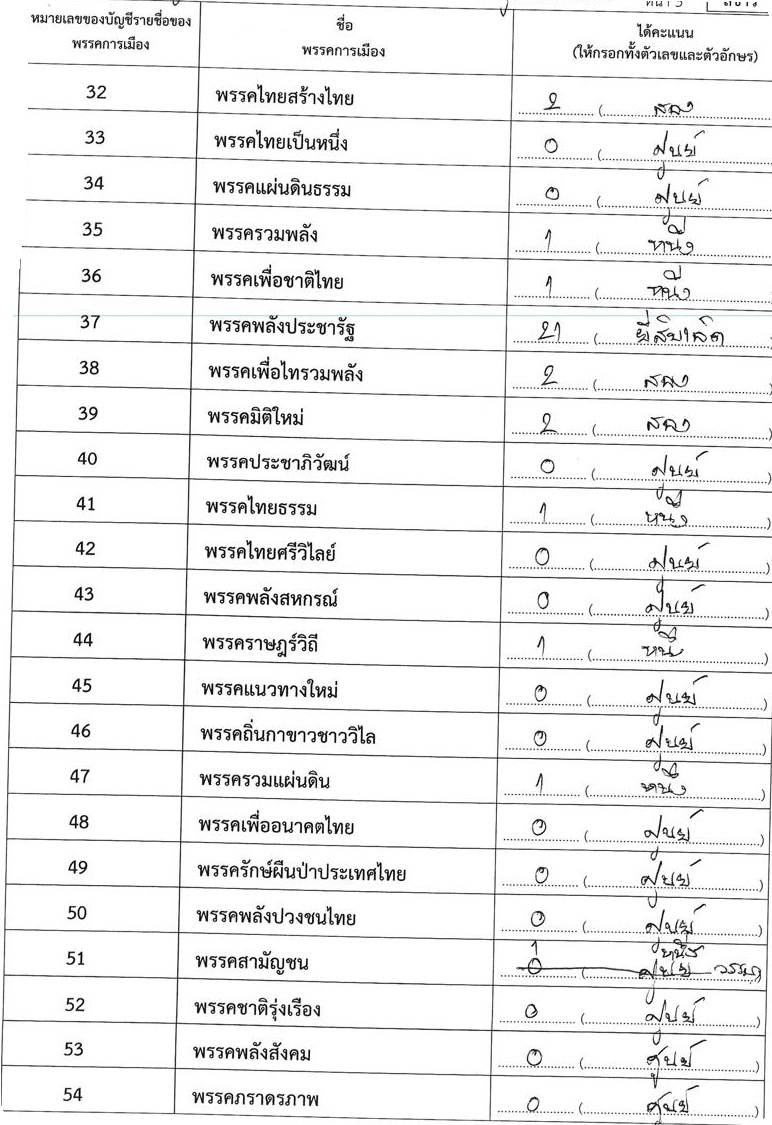 หมายเลขของบัญชีรายชื่อของ
พรรคการเมือง
ชื่อ
พรรคการเมือง
ได้คะแนน
(ให้กรอกทั้งตัวเลขและตัวอักษร)
32 พรรคไทยสร้างไทย 2 ( สอง
33 พรรคไทยเป็นหนึ่ง 0 ( ศูนย์
34 พรรคแผ่นดินธรรม 0 ( ศูนย์
35 พรรครวมพลัง 1 ( หนึ่ง
36 พรรคเพื่อชาติไทย 1 ( หนึ่ง
37 พรรคพลังประชารัฐ 21 ( ยี่สิบเอ็ด
38 พรรคเพื่อไทรวมพลัง 2 ( สอง )
39 พรรคมิติใหม่ 2 ( สอง )
40 พรรคประชาภิวัฒน์ 0 ( ศูนย์ )
41 พรรคไทยธรรม 1 ( หนึ่ง )
42 พรรคไทยศรีวิไลย์ 0 ( ศูนย์ )
43 พรรคพลังสหกรณ์ 0 ( ศูนย์ )
44 พรรคราษฎร์วิถี 1 ( หนึ่ง )
45 พรรคแนวทางใหม่ 0 ( ศูนย์ )
46 พรรคถิ่นกาขาวชาววิไล 0 ( ศูนย์ )
47 พรรครวมแผ่นดิน 1 ( หนึ่ง )
48 พรรคเพื่ออนาคตไทย 0 ( ศูนย์ )
49 พรรครักษ์ผืนป่าประเทศไทย 0 ( ศูนย์ )
50 พรรคพลังปวงชนไทย 0 ( ศูนย์ )
1 หนึ่ง
51 พรรคสามัญชน 0 ( ศูนย์ )
52 พรรคชาติรุ่งเรือง 0 ( ศูนย์ )
53 พรรคพลังสังคม 0 ( ศูนย์ )
54 พรรคภราดรภาพ 0 ( ศูนย์ )